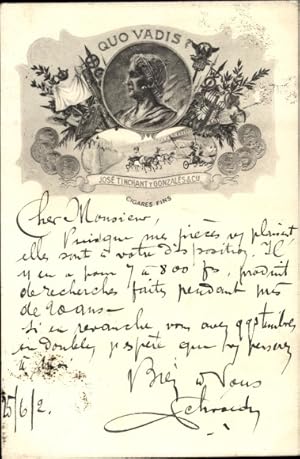 QUO VADIS
JOSÉ TINCHANT Y GONZALES & CIA
CIGARES FINS
Cher Monsieur,
Puisque mes pièces vs plaisent
elles sont à votre disposition. Il
y en a pour 7 à 800 fs, produit
de recherches faites pendant près
de 20 ans -
Si en revanche, vous avez qq timbres
en doubles j'espère que vs penserez
à
Bien à Vous
25/6/2.